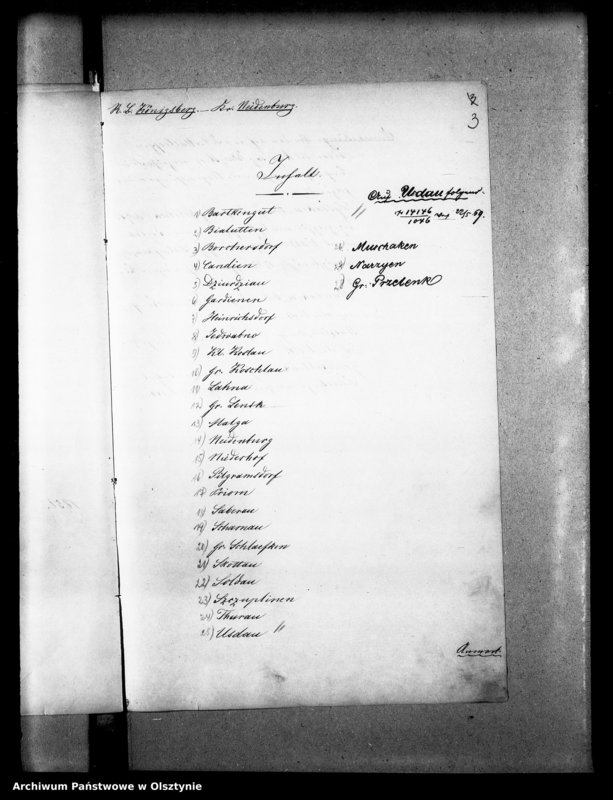 3
3
R. B. Königsberg. Kr. Neidenburg.
Inhalt.
1) Bartkengut //
2) Bialutten
3) Borchersdorf
4) Candien
5) Dziurdziau
6) Gardienen
7) Heinrichsdorf
8) Jedwabno
9) Kl. Koslau
10) Gr. Koschlau
11) Lahna
12) Gr. Lensk
13) Malga
14) Neidenburg
15) Niederhof
16) Pilgramsdorf
17) Priom
18) Saberau
19) Scharnau
20) Gr. Schlaefken
21) Skottau
22) Soldau
23) Szczuplinen
24) Thurau
25) Usdau //
Usdau folgend.
14146
1046 22/5 69.
26) Muschaken
27) Narzyen
28) Gr. Przelenk
Archiwum Państwowe w Olsztynie